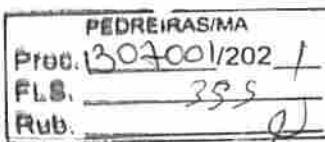 PEDREIRAS/MA
Proc. 1307001/202 1
FLS. 395
Rub.